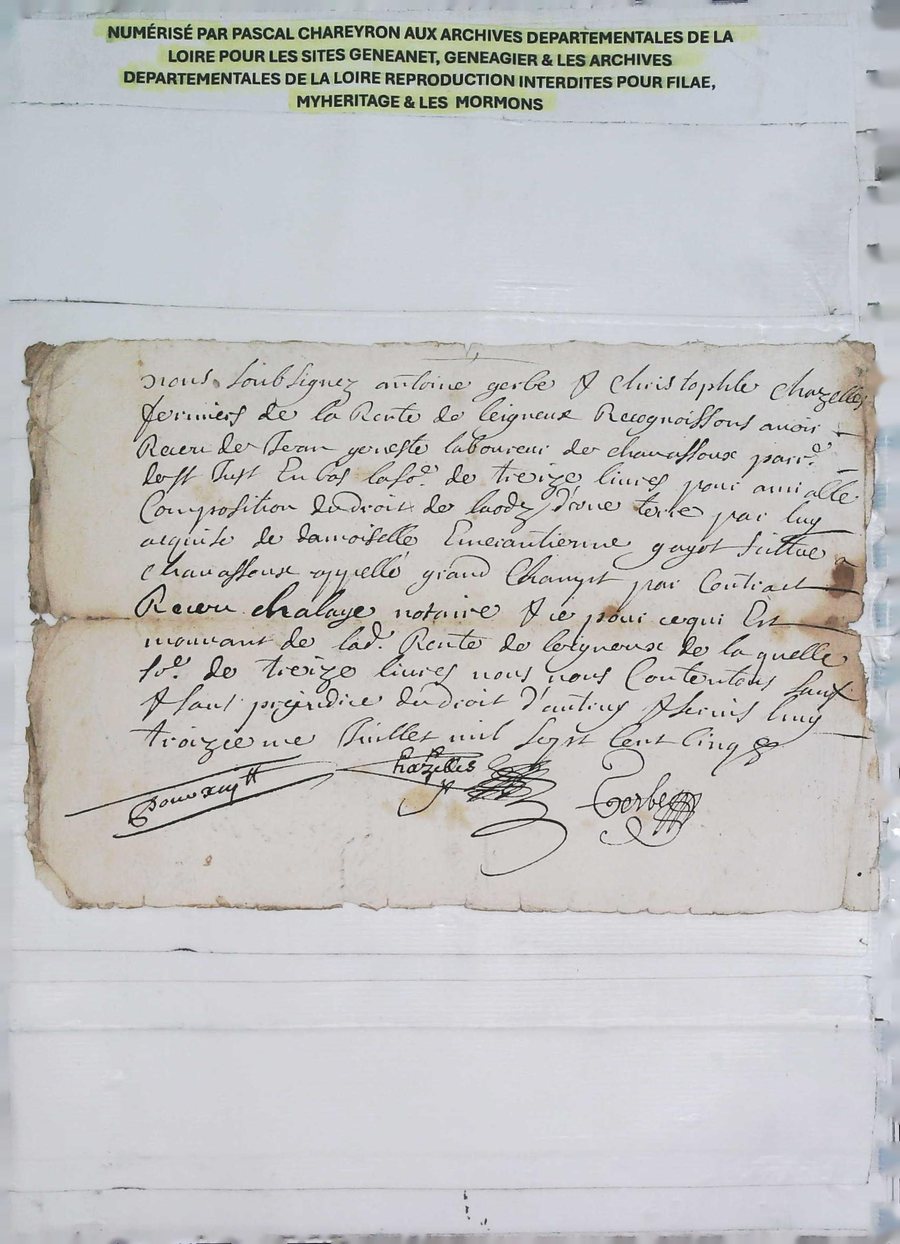 NUMÉRISÉ PAR PASCAL CHAREYRON AUX ARCHIVES DEPARTEMENTALES DE LA
LOIRE POUR LES SITES GENEANET, GENEAGIER & LES ARCHIVES
DEPARTEMENTALES DE LA LOIRE REPRODUCTION INTERDITES POUR FILAE,
MYHERITAGE & LES MORMONS
nous soubsignez antoine gerbe & Christophle chazelles
fermiers de la Rente de leigneux Recognoissons avoir
Receu de Jean geneste laboureur de chavassoux parr.e
de st Just En bas la so.e de treize livres pour amiable
Composition du droit de laodz d'une terre par luy
acquise de damoiselle Emerantienne gayot scittué
chavassoux appellé grand Champt par Contract
Receu chalaye notaire & ce pour ce qui Est
mouvant de lad. Rente de leigneux de la quelle
so.e de treize livres nous nous Contentons sauf
& sans prejudice du droit d'autruy & servis
troizieme Juillet mil sept cent cinq
Chazelles
Gerbe